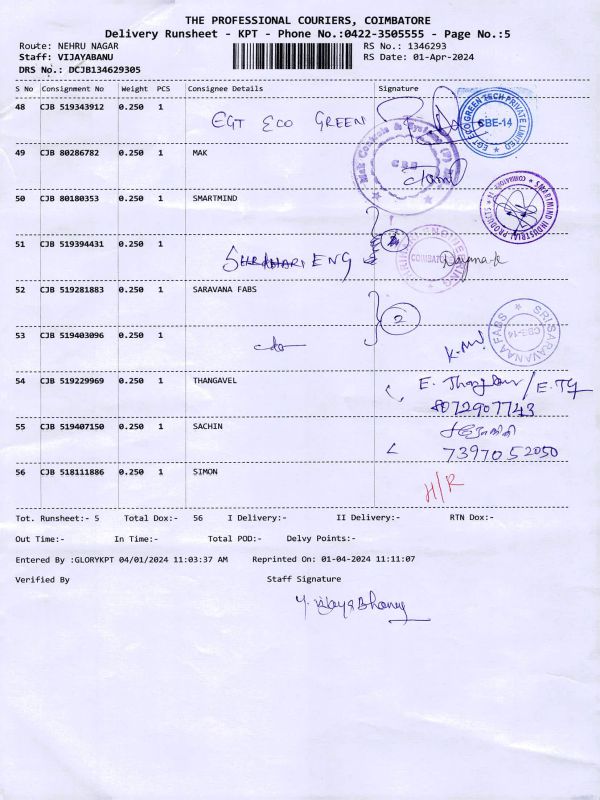 THE PROFESSIONAL COURIERS, COIMBATORE
Delivery Runsheet - KPT - Phone No.:0422-3505555 - Page No.:5
Route: NEHRU NAGAR RS No.: 1346293
Staff: VIJAYABANU RS Date: 01-Apr-2024
DRS No.: DCJB134629305
S No Consignment No Weight PCS Consignee Details Signature
48 CJB 519343912 0.250 1 EGT ECO GREEN
EGT ECO GREEN TECH PRIVATE LIMITED CBE-14
49 CJB 80286782 0.250 1 MAK
50 CJB 80180353 0.250 1 SMARTMIND
SMARTMIND INDUSTRIAL PRODUCTS COIMBATORE
51 CJB 519394431 0.250 1 ENG
52 CJB 519281883 0.250 1 SARAVANA FABS 2
53 CJB 519403096 0.250 1 do
SRI SARAVANAA FABS CBE-14
54 CJB 519229969 0.250 1 THANGAVEL
8072907743
55 CJB 519407150 0.250 1 SACHIN
7397052050
56 CJB 518111886 0.250 1 SIMON H/R
Tot. Runsheet:- 5 Total Dox:- 56 I Delivery:- II Delivery:- RTN Dox:-
Out Time:- In Time:- Total POD:- Delvy Points:-
Entered By :GLORYKPT 04/01/2024 11:03:37 AM Reprinted On: 01-04-2024 11:11:07
Verified By Staff Signature